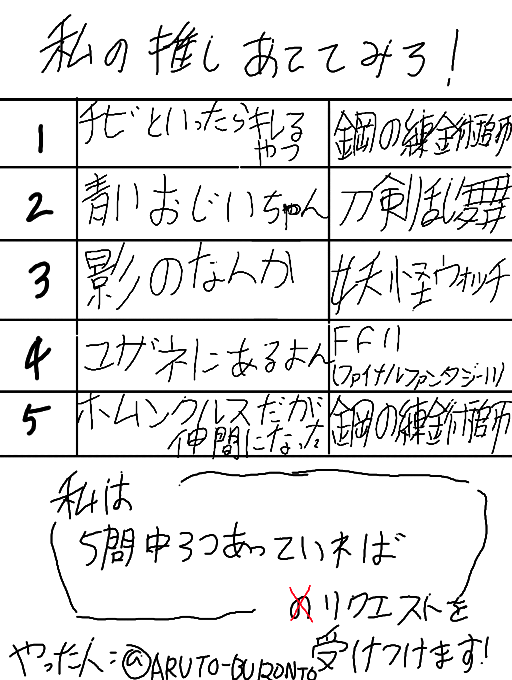 私の推しあててみろ!
1 チビといったらキレるやつ 鋼の錬金術師
2 青いおじいちゃん 刀剣乱舞
3 影のなんか 妖怪ウォッチ
4 ユザネにあるよん FF11(ファイナルファンタジー11)
5 ホムンクルスだが仲間になった 鋼の錬金術師
私は
5問中3つあっていれば
のリクエストを
受けつけます!
やった人:@ARUTO-GURONTO